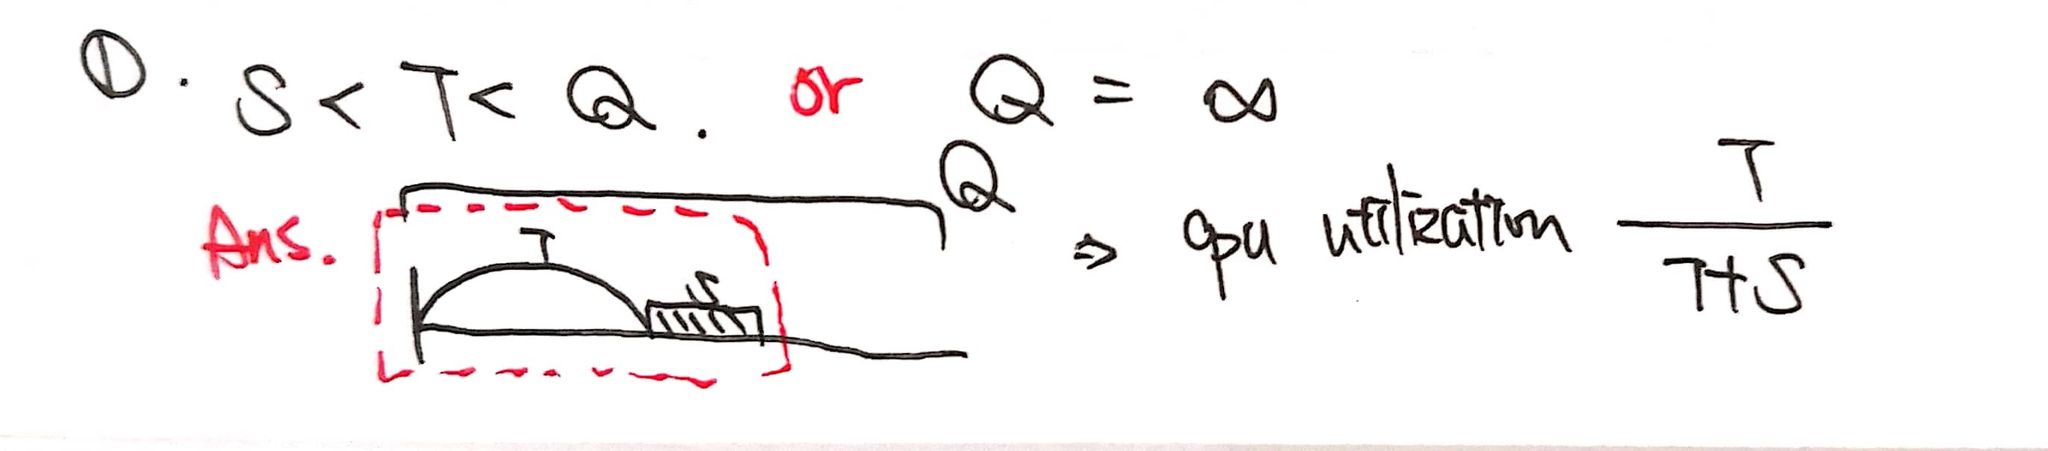 ①. S < T < Q. or Q = ∞
Q
Ans. T S ⇒ cpu utilization T / T+S